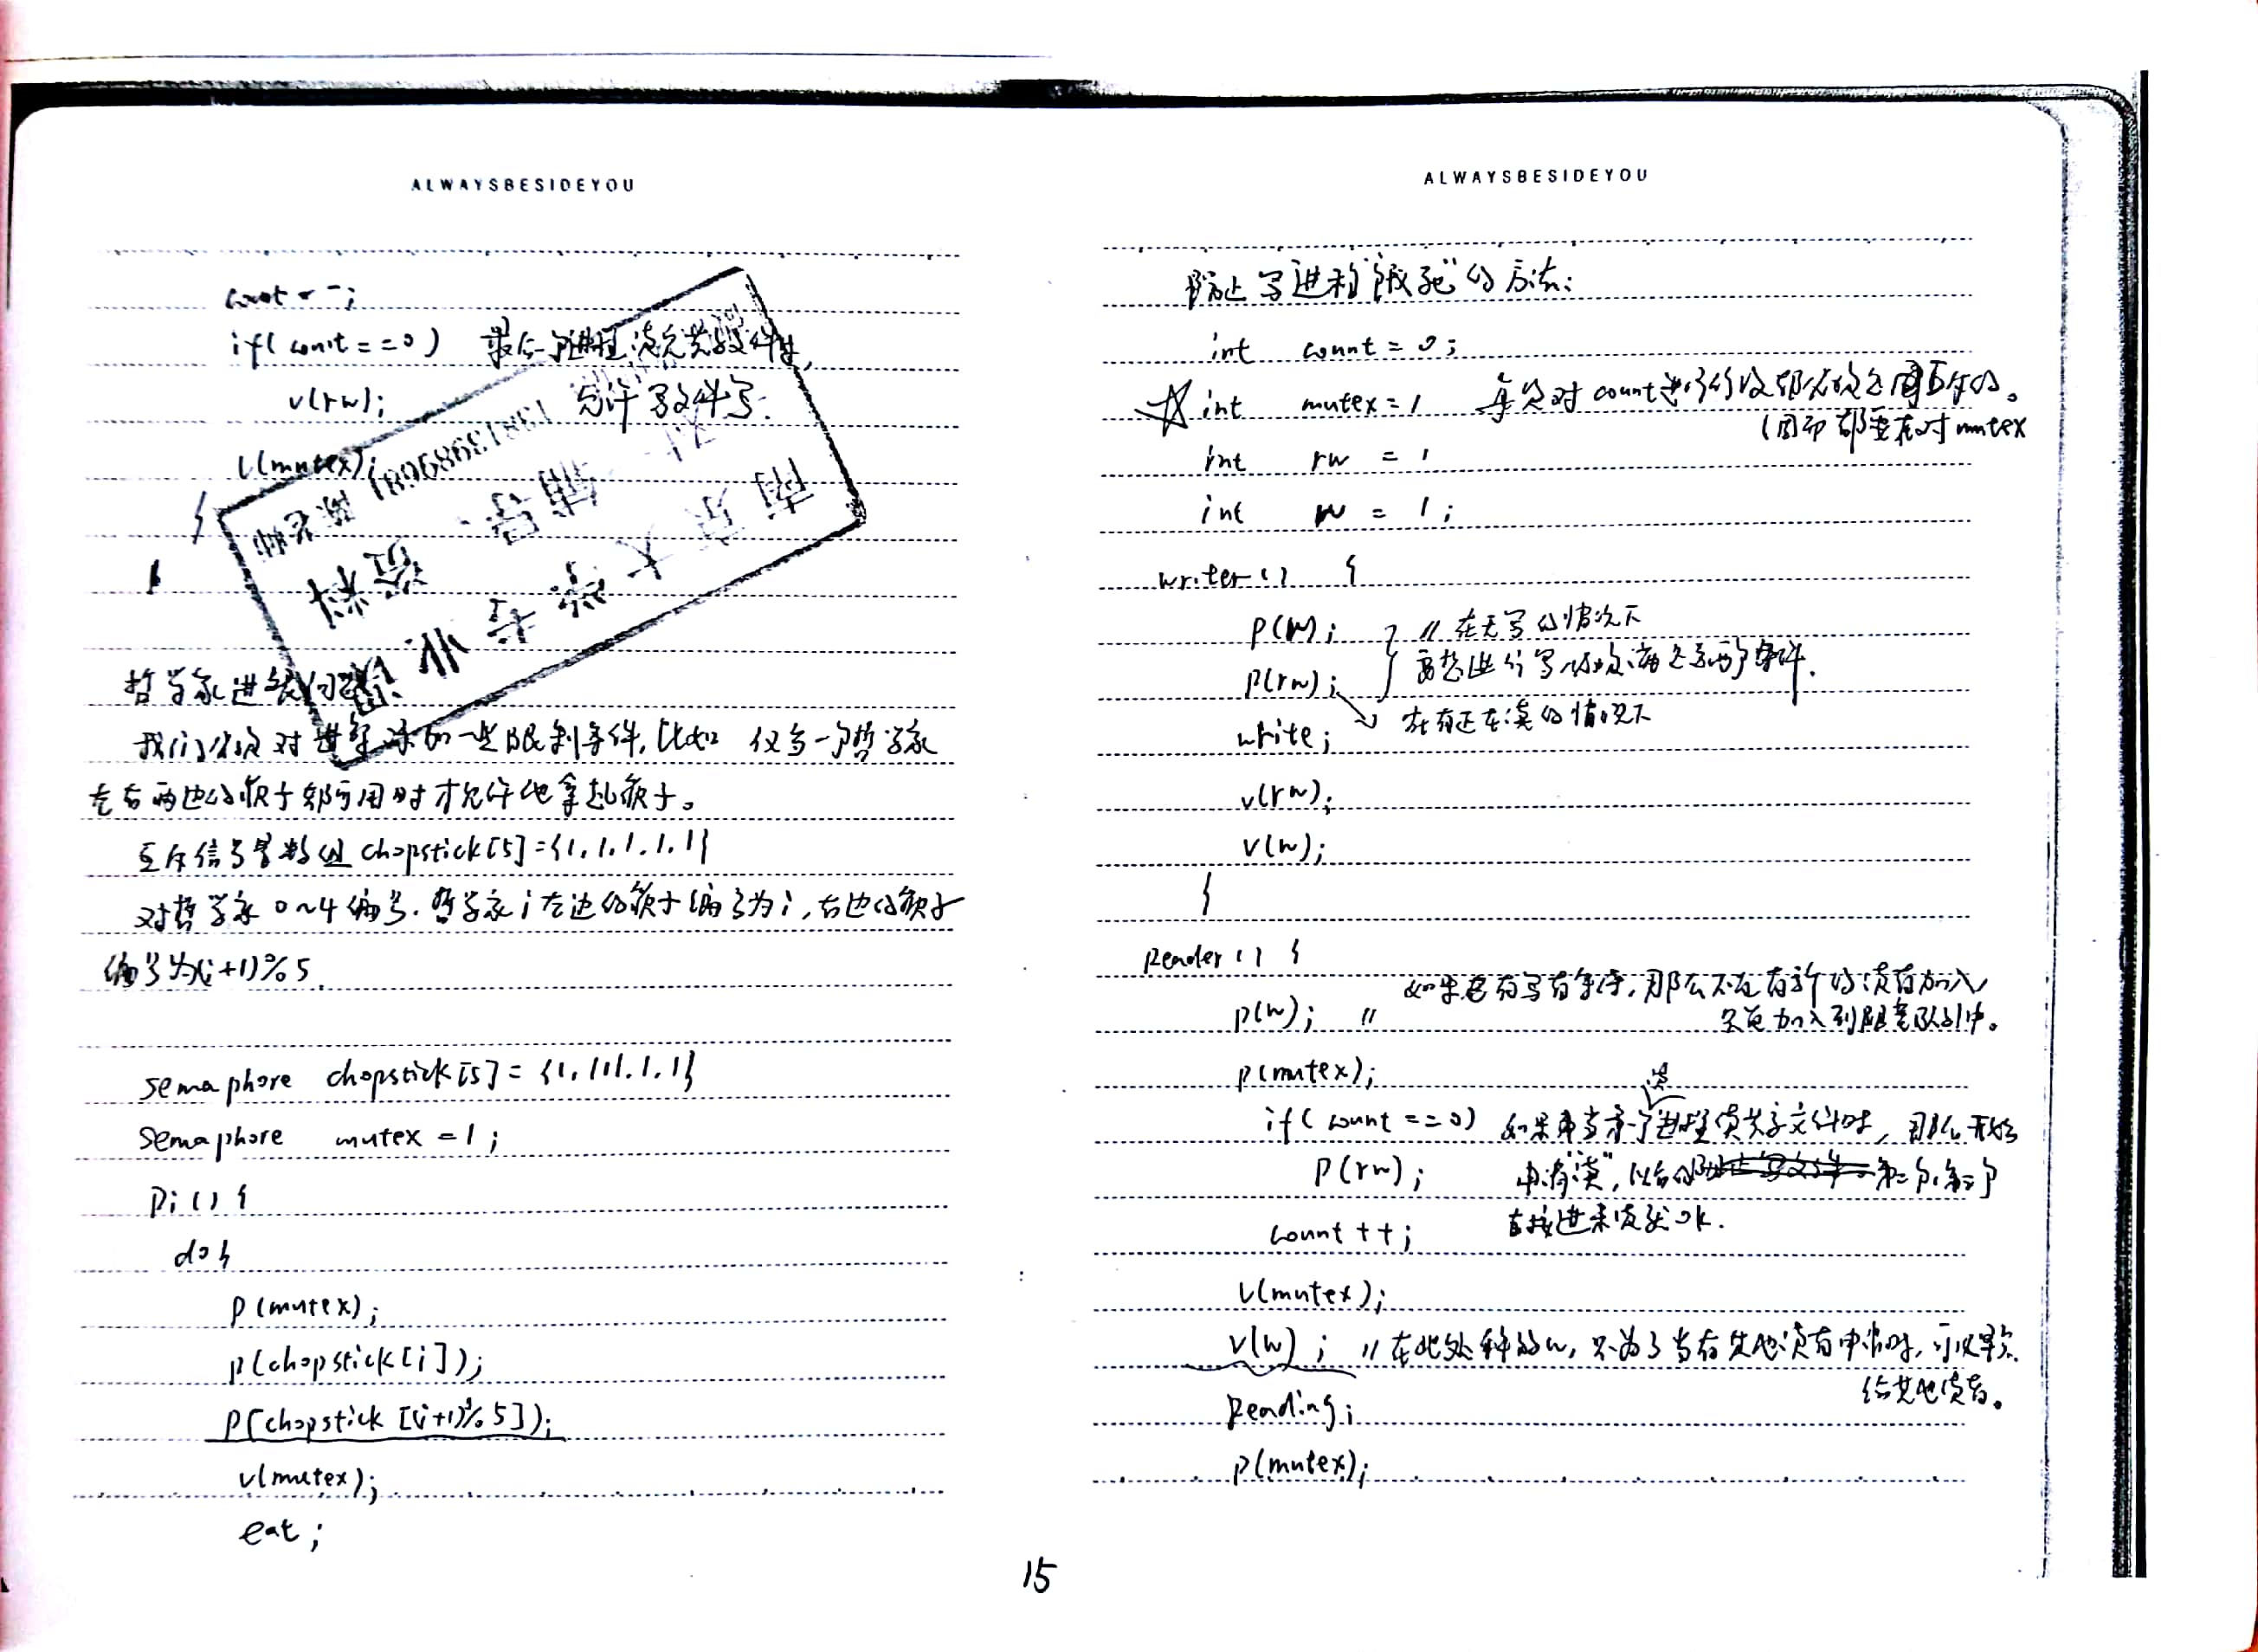 ALWAYSBESIDEYOU
count--;
if( count==0) 最后一个进程读完共享文件,
v(rw); 允许写文件写.
V(mutex);
}
哲学家进餐问题
我们必须对进餐添加一些限制条件,比如 仅当一个哲学家
左右两边的筷子都可用时才允许他拿起筷子。
互斥信号量数组 chopstick[5]={1.1.1.1.1}
对哲学家 0~4 编号. 哲学家 i 左边的筷子编号为 i, 右边的筷子
编号为(i+1)%5.
semaphore chopstick[5] = {1.1.1.1.1}
semaphore mutex =1;
Pi() {
do{
P(mutex);
P(chopstick[i]);
P[chopstick [(i+1)%5]);
v(mutex);
eat;
ALWAYSBESIDEYOU
防止写进程"饿死"的方法:
int count = 0;
int mutex=1 每次对 count 进行修改都必须是互斥的。
(因而都要在对 mutex
int rw = 1
int w = 1;
writer() {
P(w); // 在无写的情况下
P(rw); 要想进行写,必须满足这两个条件.
在有正在读的情况下
write;
v(rw);
v(w);
}
Reader() {
如果已有写者等待,那么不应有新的读者加入
P(w); // 只能加入到阻塞队列中。
P(mutex);
if( count ==0) 如果当第一个读进程读共享文件时, 那么开始
P(rw); 申请"读", 以后的第二个,第三个
count ++; 直接进来读就ok.
V(mutex);
v(w); // 在此处释放w, 只为了当有其他读者申请时, 可以享
给其他读者。
Reading;
P(mutex);
15